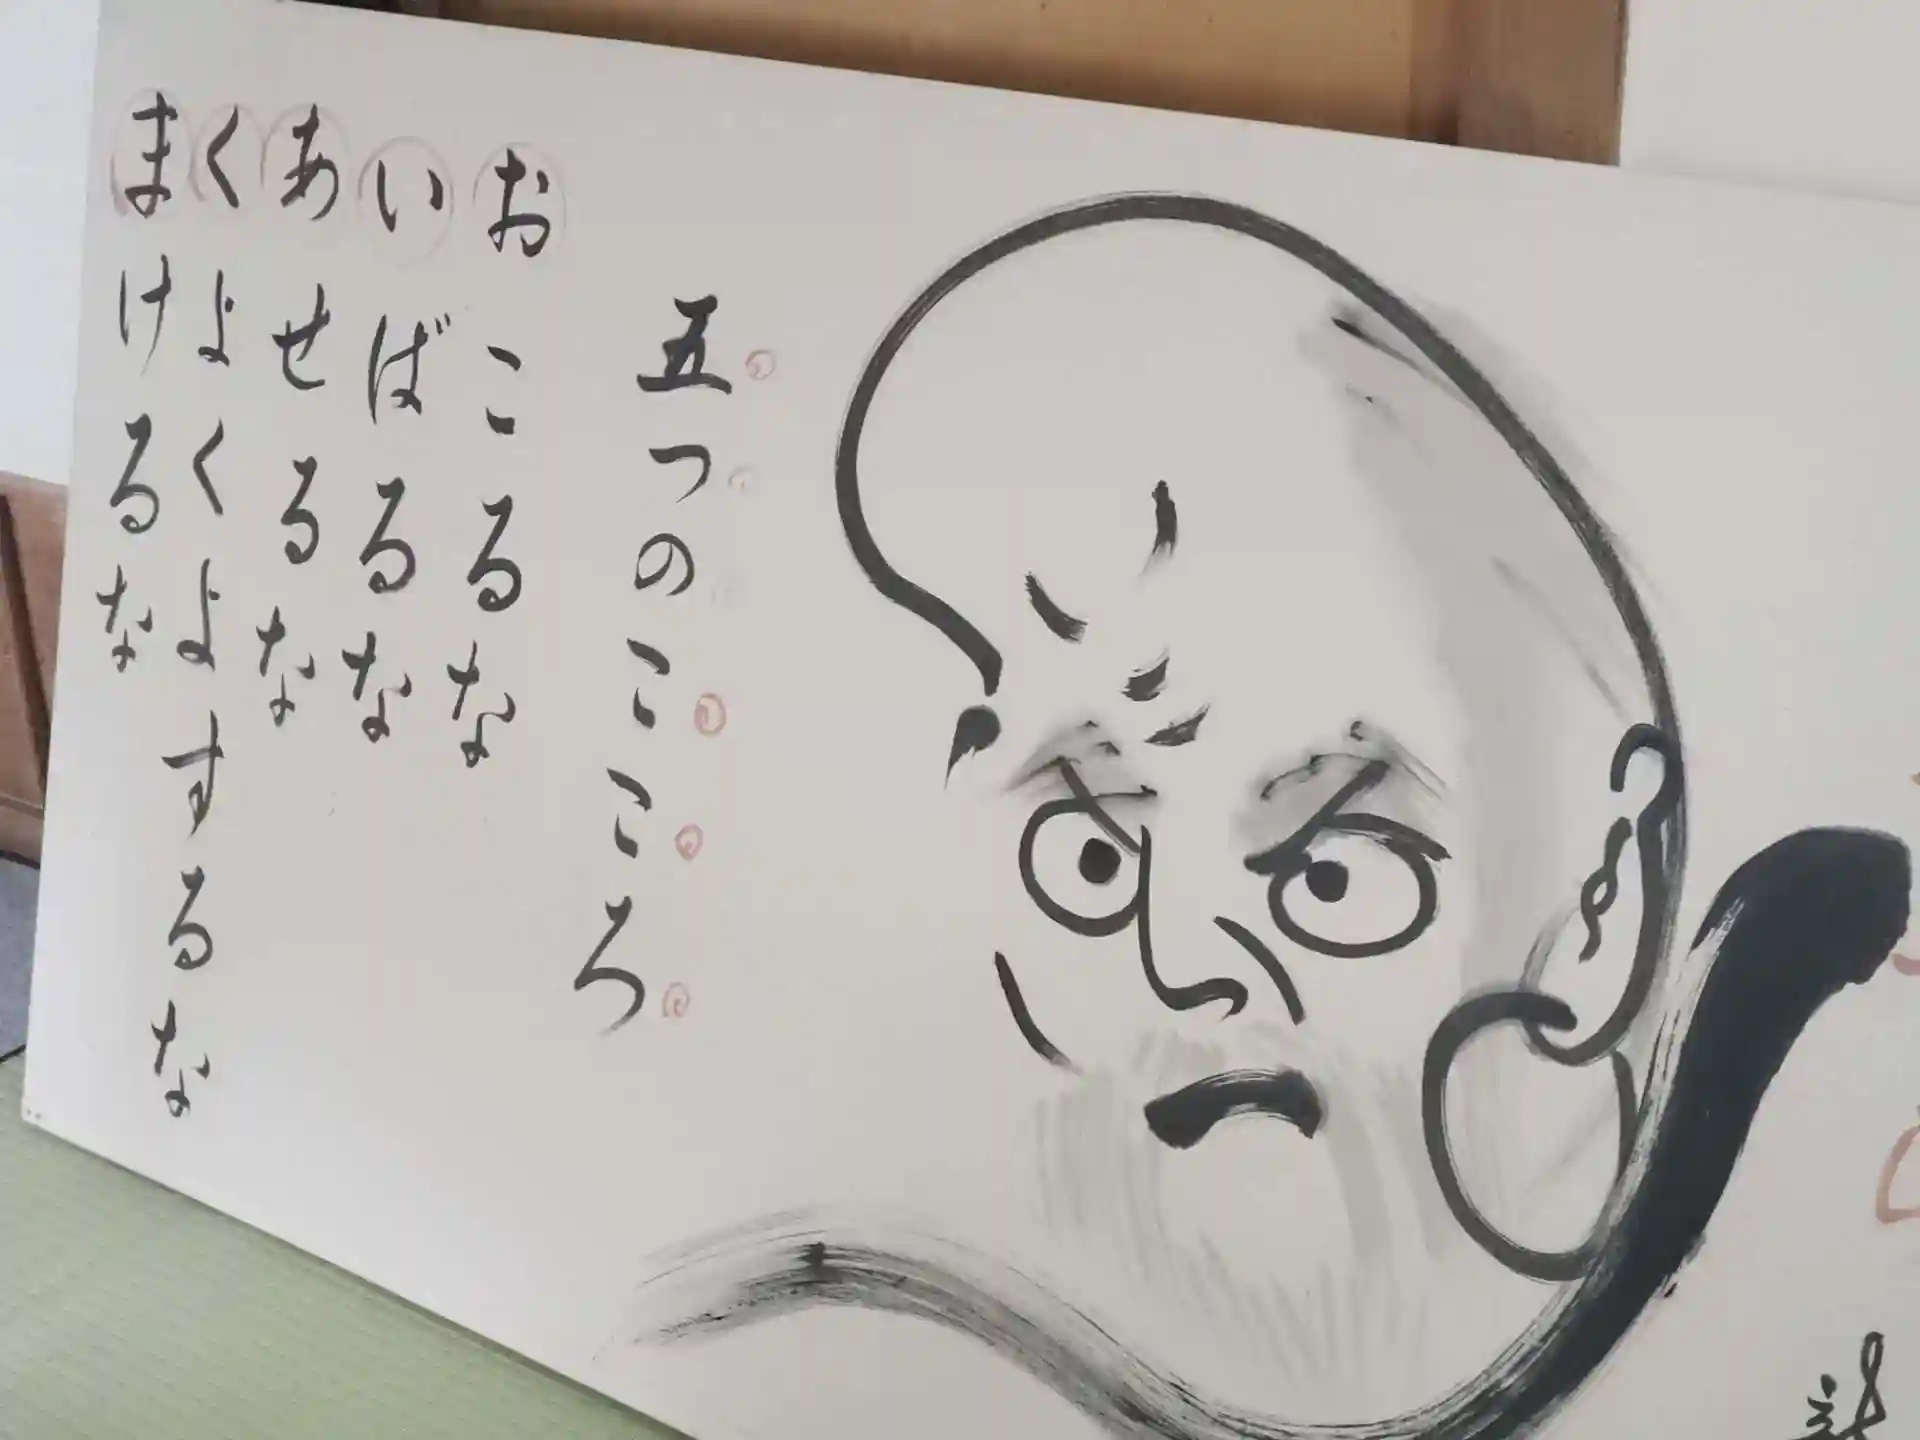 五つのこころ
おこるな
いばるな
あせるな
くよくよするな
まけるな